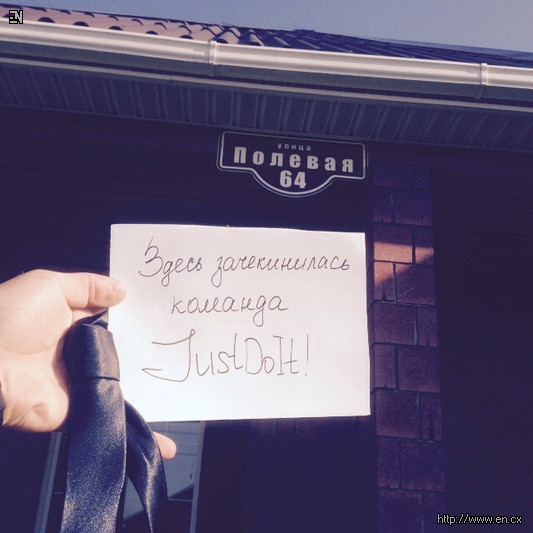 EN
улица
Полевая
64
Здесь зачекинилась
команда
JustDoIt!
http://www.en.cx